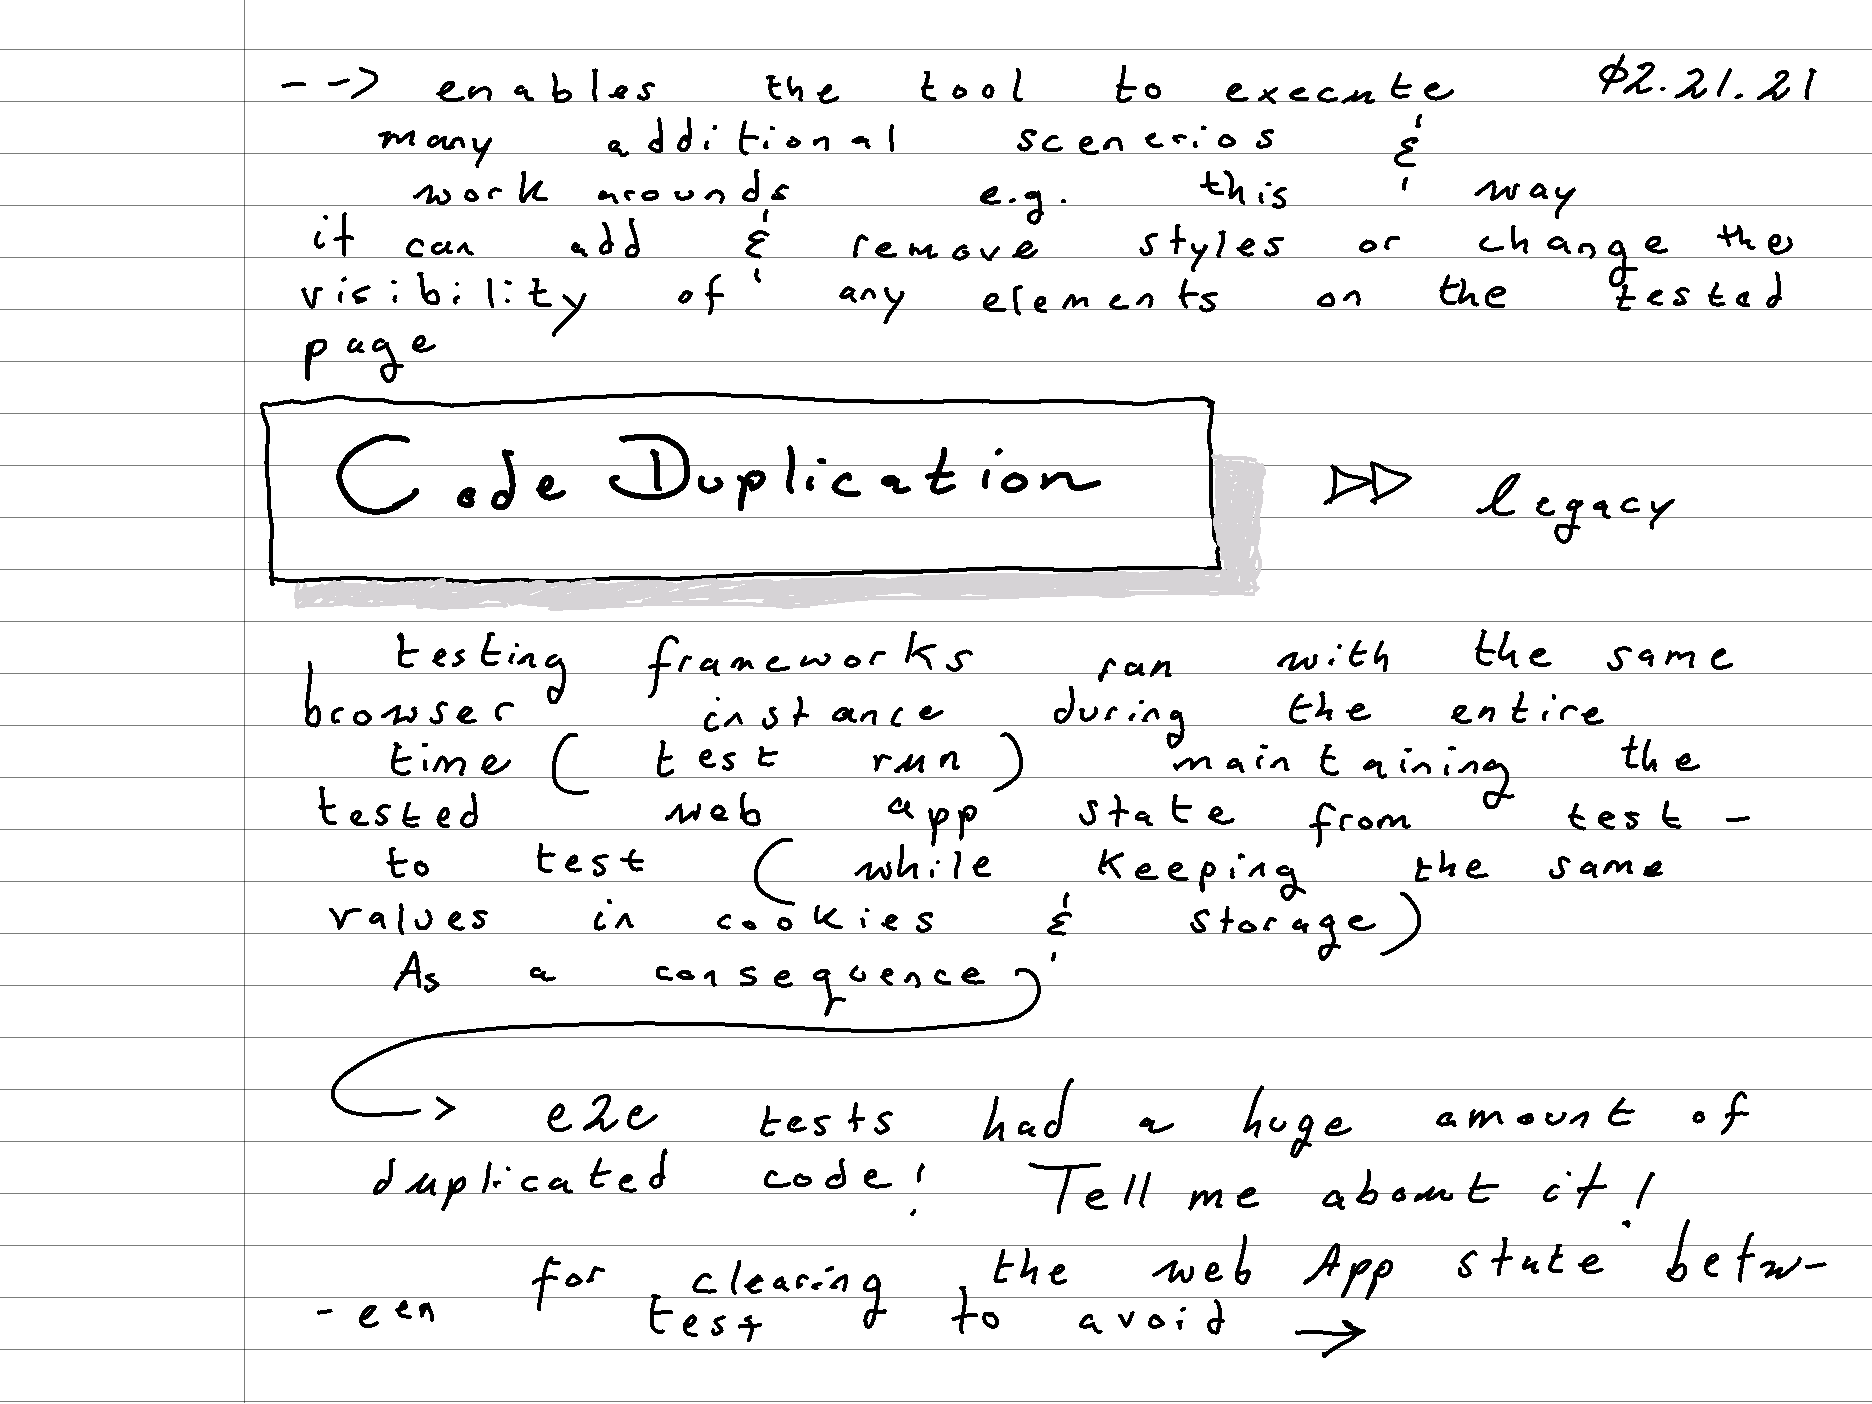 --> enables the tool to execute 02.21.21
many additional scenerios &
work arounds e.g. this way
it can add & remove styles or change the
visibility of any elements on the tested
page
Code Duplication ▷▷ legacy
testing frameworks ran with the same
browser instance during the entire
time ( test run ) maintaining the
tested web app state from test -
to test ( while keeping the same
values in cookies & storage )
As a consequence
-> e2e tests had a huge amount of
duplicated code! Tell me about it!
for clearing the web App state betw-
-een test to avoid →